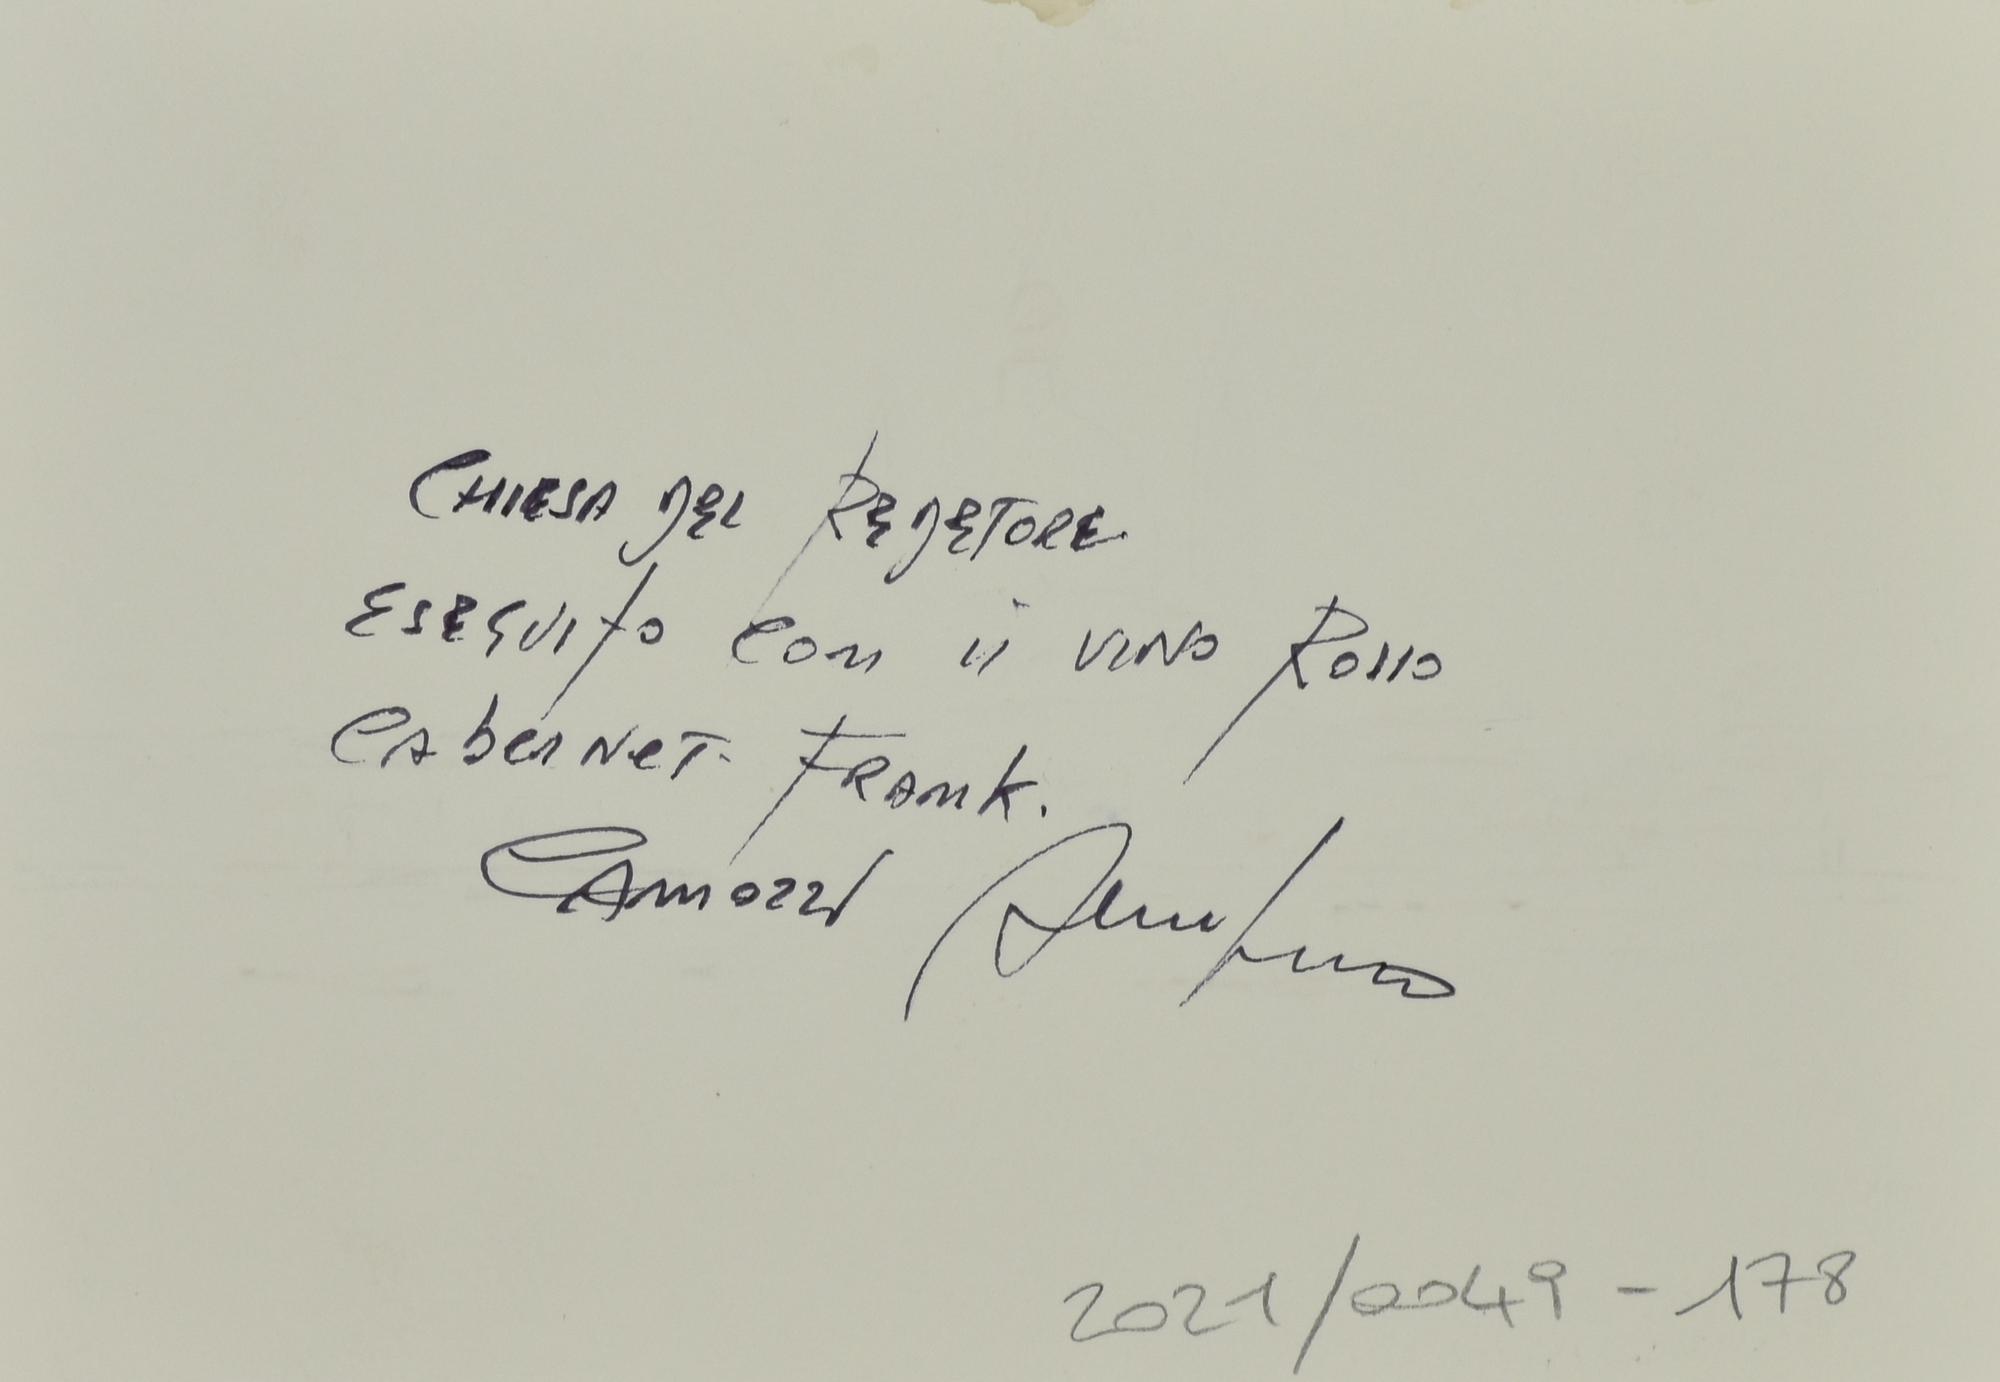 CHIESA DEL REDETORE
ESEGUITO CON il VINO ROSSO
CAbERNET FRANK.
CAMOZZI
2021/0049 - 178